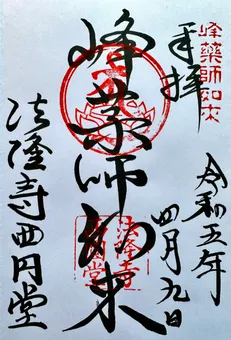 峰薬師如来
奉拝
令和五年
四月九日
峰薬師如来
法隆寺西円堂
法隆寺
西円堂